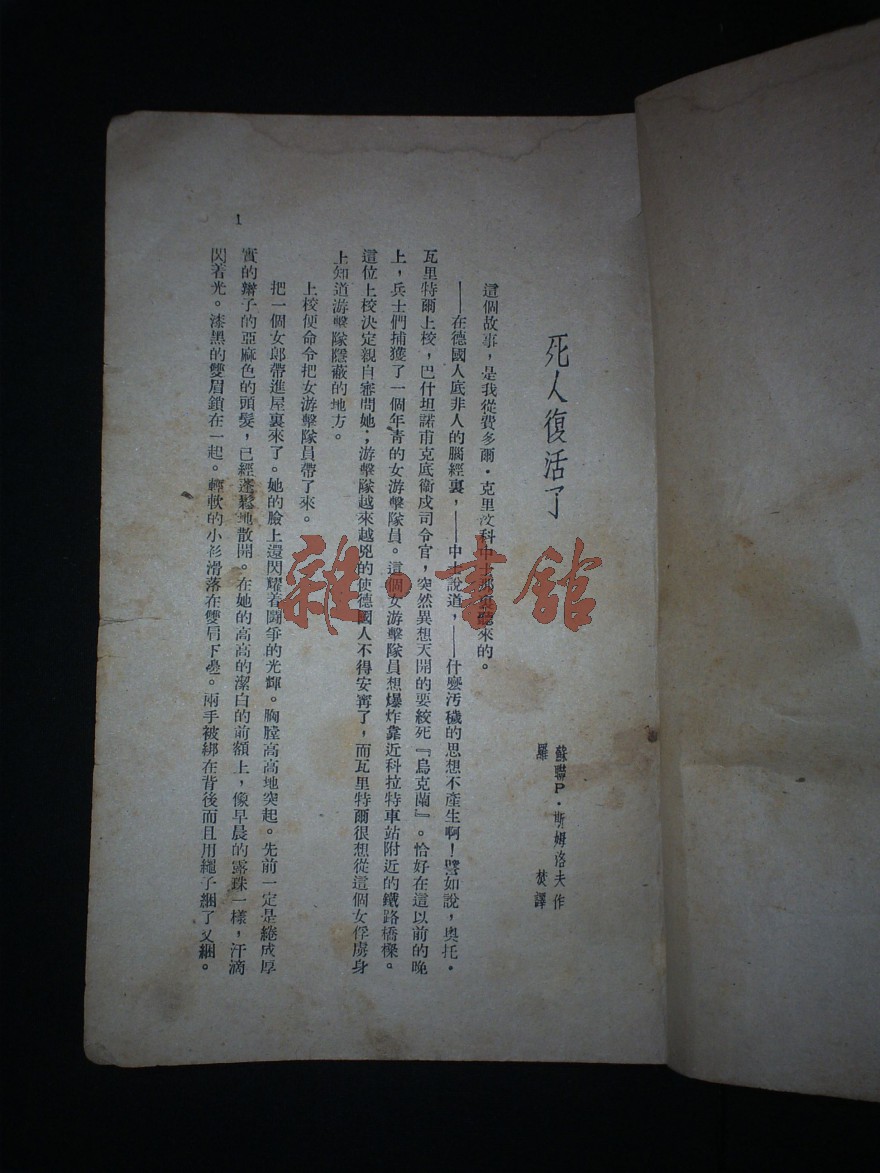 死人復活了
蘇聯P·斯姆洛夫作
羅焚譯
這個故事，是我從費多爾·克里汶科中士那裏聽來的。
——在德國人底非人的腦經裏，——中士說道，——什麼汚穢的思想不產生啊！譬如說，奧托·
瓦里特爾上校，巴什坦諾甫克底衛戍司令官，突然異想天開的要絞死『烏克蘭』。恰好在這以前的晚
上，兵士們捕獲了一個年靑的女游擊隊員。這個女游擊隊員想爆炸靠近科拉特車站附近的鐵路橋樑。
這位上校決定親自審問她；游擊隊越來越兇的使德國人不得安寗了，而瓦里特爾很想從這個女俘虜身
上知道游擊隊隱蔽的地方。
上校便命令把女游擊隊員帶了來。
把一個女郎帶進屋裏來了。她的臉上還閃耀着鬪爭的光輝。胸膛高高地突起。先前一定是綣成厚
實的辮子的亞麻色的頭髮，已經蓬鬆地散開。在她的高高的潔白的前額上，像早晨的露珠一樣，汗滴
閃着光。漆黑的雙眉鎖在一起。輕軟的小衫滑落在雙肩下邊。兩手被綁在背後而且用繩子綑了又綑。
1
雜·書館